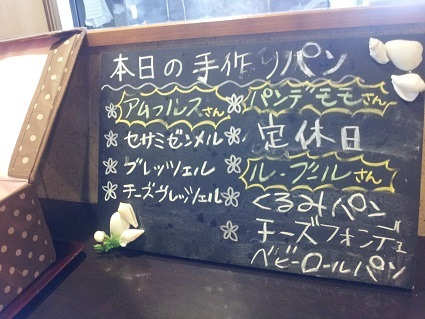 本日の手作りパン
アムフルスさん
セサミゼンメル
ブレッツェル
チーズブレッツェル
パンデモモさん
定休日
ル・ブルさん
くるみパン
チーズフォンデュ
ベビーロールパン